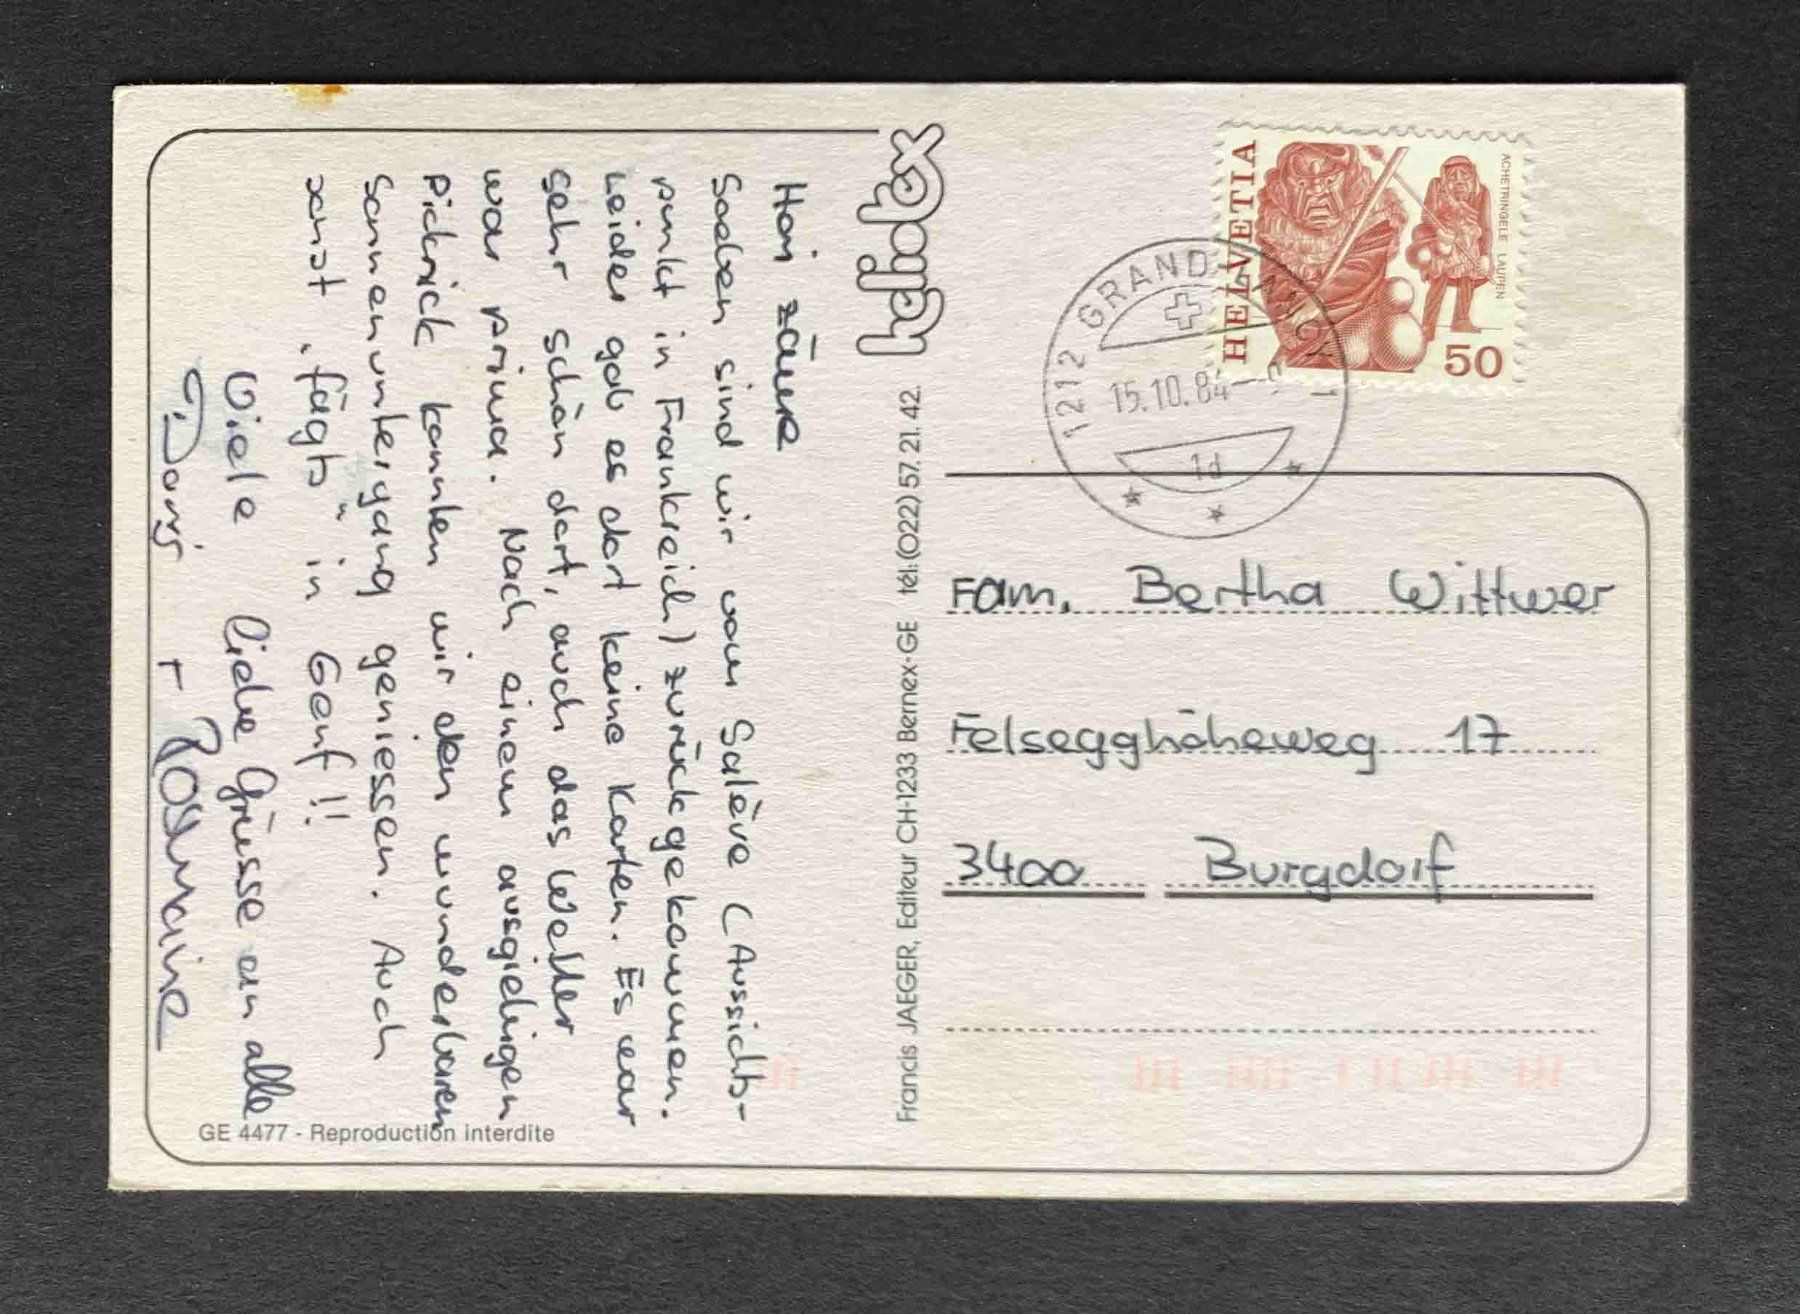 Hoi zäme
Soeben sind wir vom Salève (Aussichts-
punkt in Frankreich) zurückgekommen.
Leider gab es dort keine Karten. Es war
sehr schön dort, auch das Wetter
war prima. Nach einem ausgiebigen
Picknick konnten wir den wunderbaren
Sonnenuntergang geniessen. Auch
sonst "fägts" in Genf!!
Viele liebe Grüsse an alle
+ Rosmarie
GE 4477 - Reproduction interdite
heliotex
Francis JAEGER, Editeur CH-1233 Bernex-GE tél: (022) 57. 21. 42.
HELVETIA
ACHETRINGELE LAUPEN
50
1212 GRAND-LANCY 1
15.10.84-9
1d
Fam. Bertha Wittwer
Felsegghöheweg 17
3400 Burgdorf